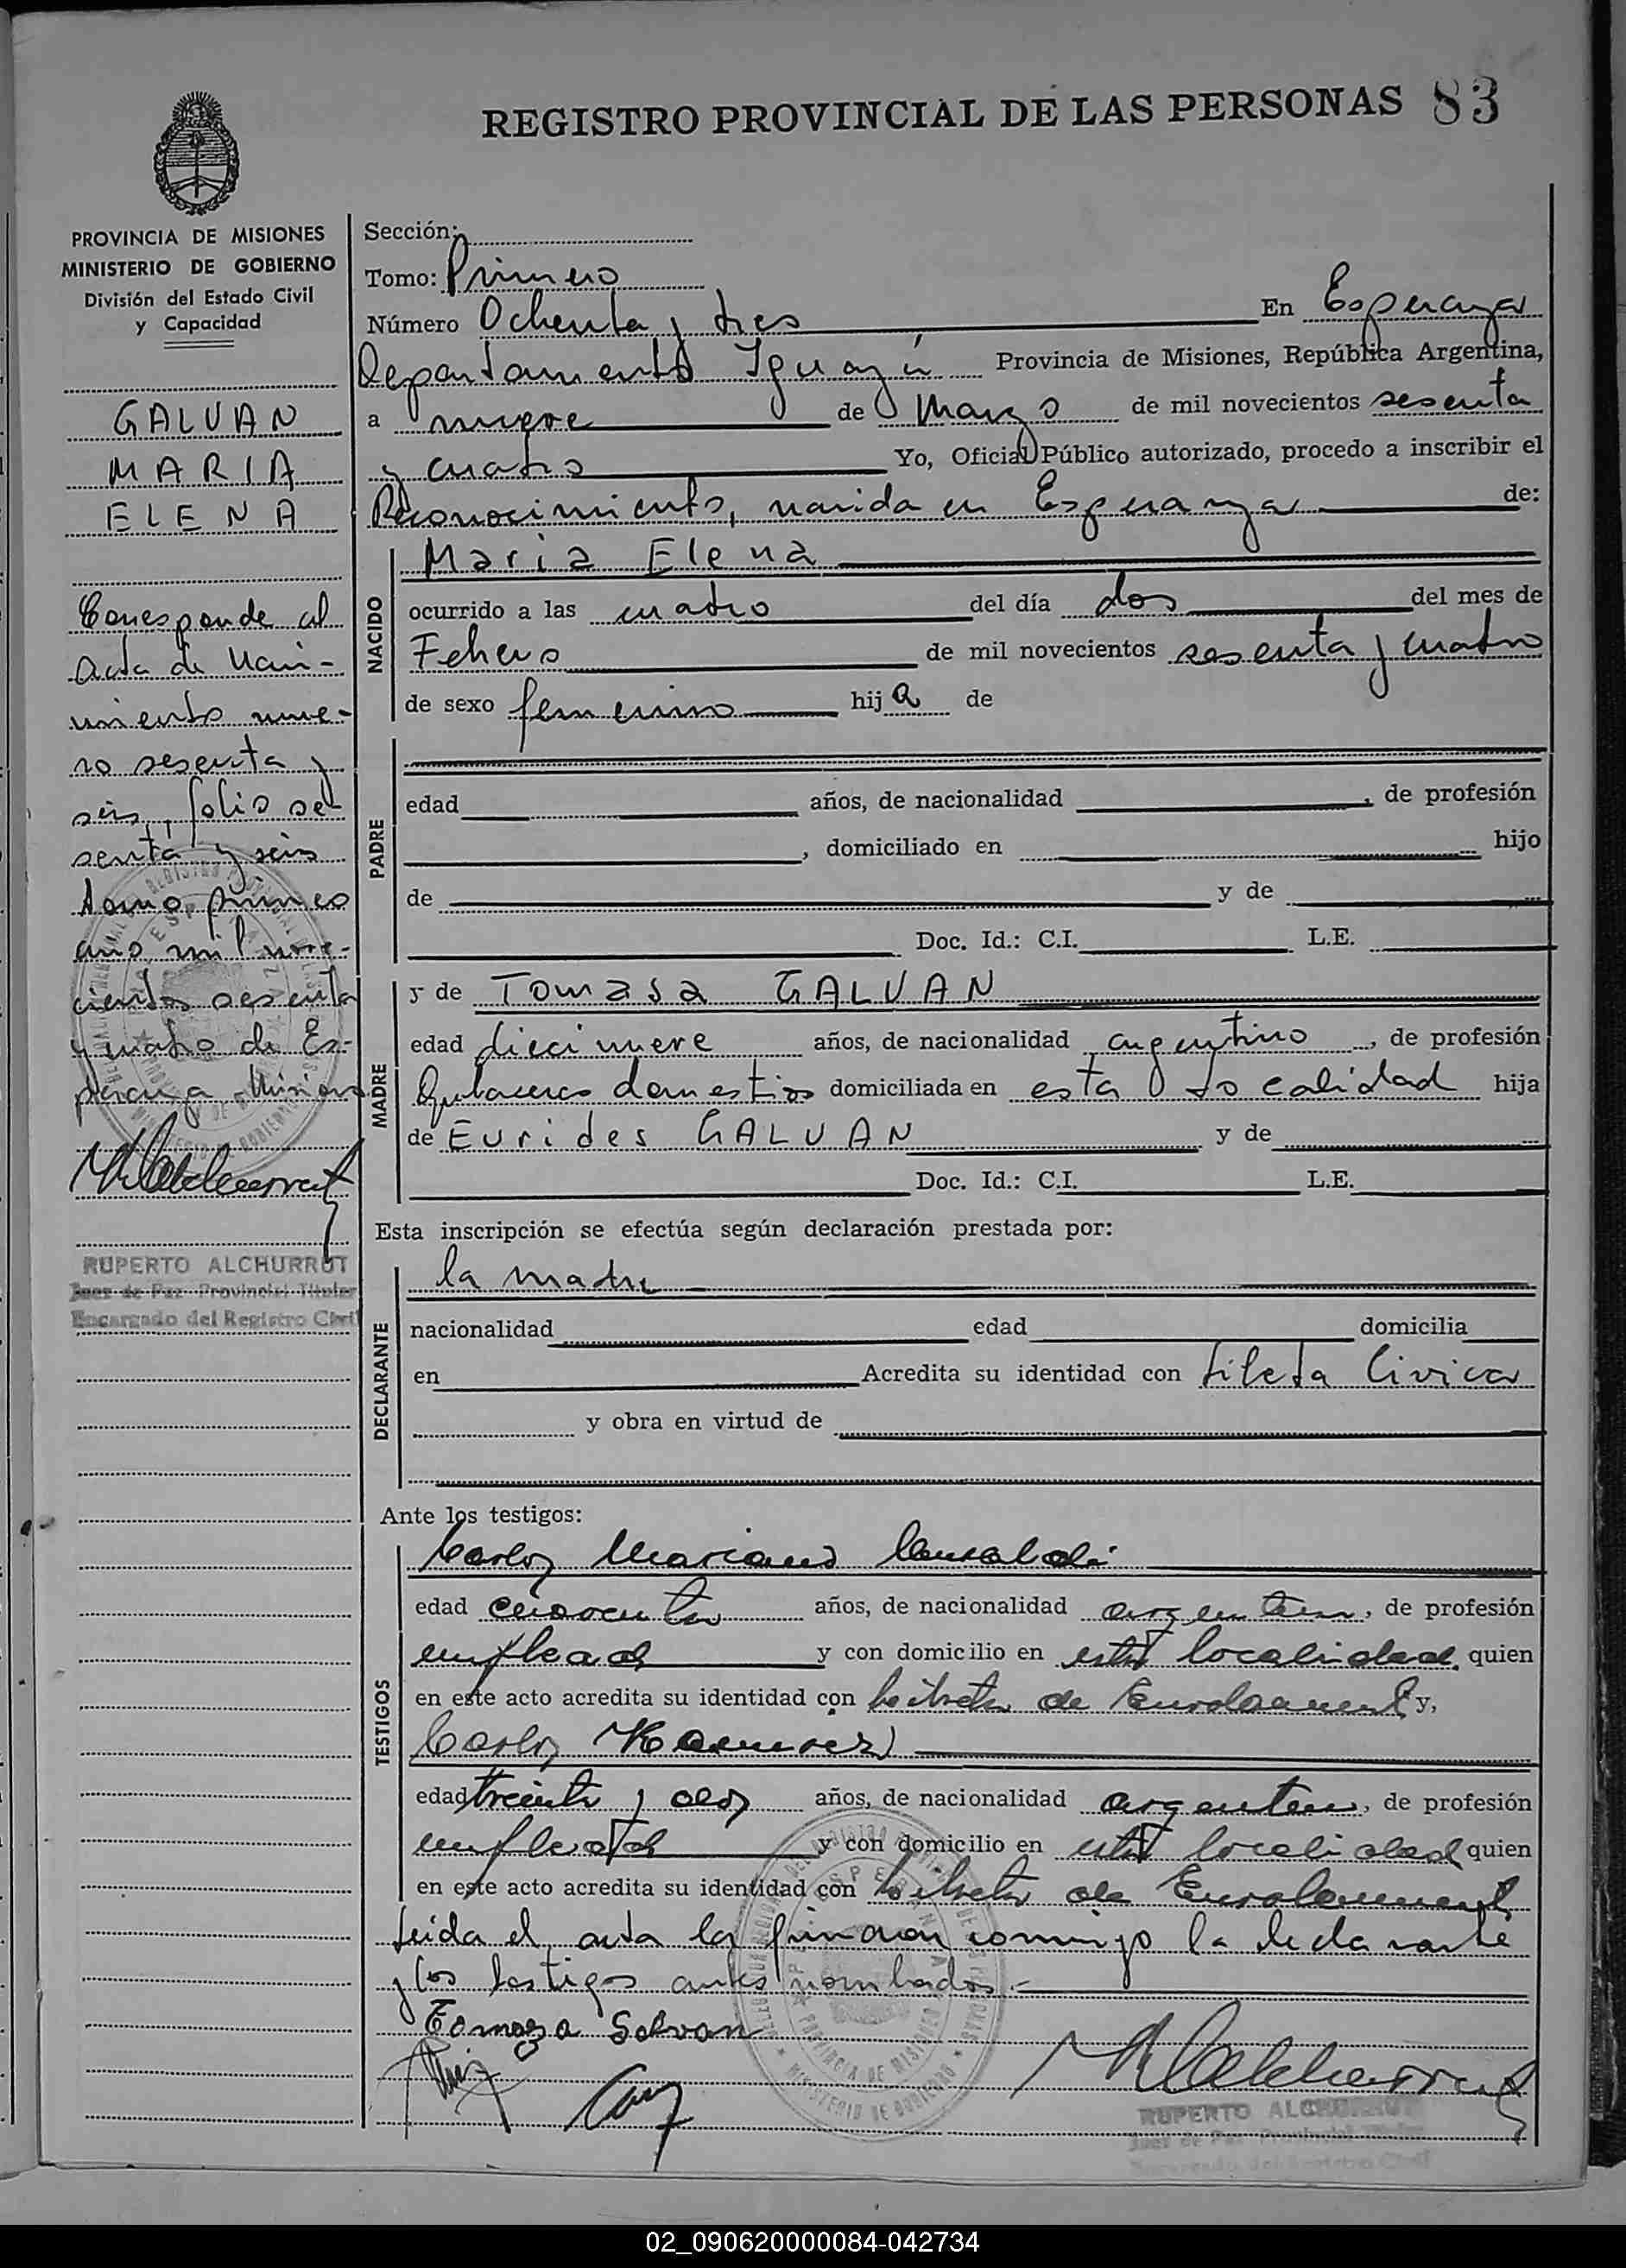 REGISTRO PROVINCIAL DE LAS PERSONAS 83
PROVINCIA DE MISIONES
MINISTERIO DE GOBIERNO
División del Estado Civil
y Capacidad
GALVAN
MARIA
ELENA
Corresponde al
acta de Naci-
miento nume-
ro sesenta y
seis, folio se-
senta y seis
tomo primero
año mil nove-
cientos sesenta
y cuatro de Es-
peranza Misiones
RUPERTO ALCHURRUT
Juez de Paz Provincial Titular
Encargado del Registro Civil
Sección:
Tomo: Primero
Número Ochenta y tres En Esperanza
Departamento Iguazú Provincia de Misiones, República Argentina,
a nueve de Marzo de mil novecientos sesenta
y cuatro Yo, Oficial Público autorizado, procedo a inscribir el
Reconocimiento, nacida en Esperanza de:
NACIDO
Maria Elena
ocurrido a las cuatro del día dos del mes de
Febrero de mil novecientos sesenta y cuatro
de sexo femenino hija de
PADRE
edad años, de nacionalidad , de profesión
, domiciliado en hijo
de y de
Doc. Id.: C.I. L.E.
MADRE
y de Tomasa GALVAN
edad diecinueve años, de nacionalidad argentino, de profesión
Quehaceres domestios domiciliada en esta localidad hija
de Eurides GALVAN y de
Doc. Id.: C.I. L.E.
Esta inscripción se efectúa según declaración prestada por:
DECLARANTE
la madre
nacionalidad edad domicilia
en Acredita su identidad con Libeta Civica
y obra en virtud de
Ante los testigos:
TESTIGOS
Carlos Mariano
edad años, de nacionalidad argentina, de profesión
empleado y con domicilio en esta localidad, quien
en este acto acredita su identidad con Libreta de Enrolamiento y,
Carlos
edad treinta y dos años, de nacionalidad argentina, de profesión
empleado y con domicilio en esta localidad quien
en este acto acredita su identidad con Libreta de Enrolamiento
Leida el acta la firman conmigo la declarante
y los testigos antes nombrados.-
Tomasa Galvan
RUPERTO ALCHURRUT
Juez de Paz Provincial Titular
Encargado del Registro Civil
02_090620000084-042734